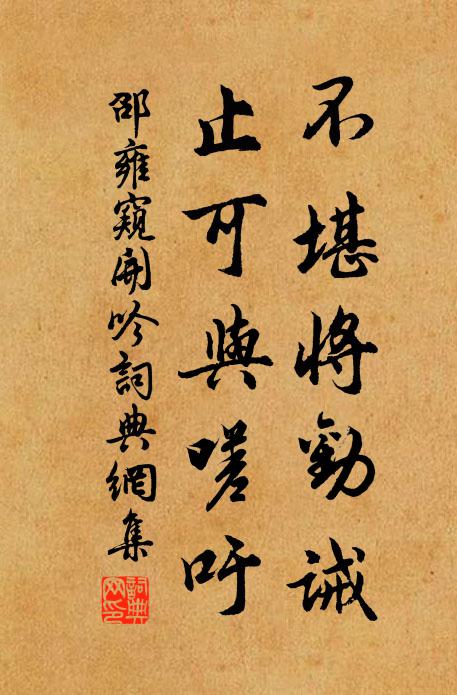 不堪將勸誡
止可與嗟吁
邵雍窺開吟詞典網集
詞典网印